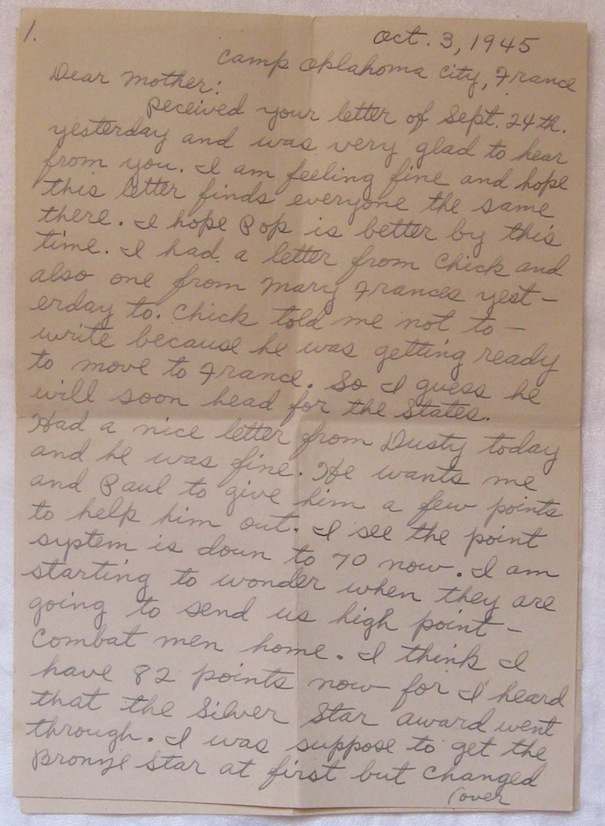 1.
Oct. 3, 1945
Camp Oplahoma City, France
Dear Mother:
Received your letter of Sept. 24th.
yesterday and was very glad to hear
from you. I am feeling fine and hope
this letter finds everyone the same
there. I hope Pop is better by this
time. I had a letter from Chick and
also one from Mary Frances yest-
erday to. Chick told me not to-
write because he was getting ready
to move to France. So I guess he
will soon head for the States.
Had a nice letter from Dusty today
and he was fine. He wants me
and Paul to give him a few points
to help him out. I see the point
system is down to 70 now. I am
starting to wonder when they are
going to send us high point-
Combat men home. I think I
have 82 points now for I heard
that the Silver Star award went
through. I was suppose to get the
Bronze Star at first but changed
(over